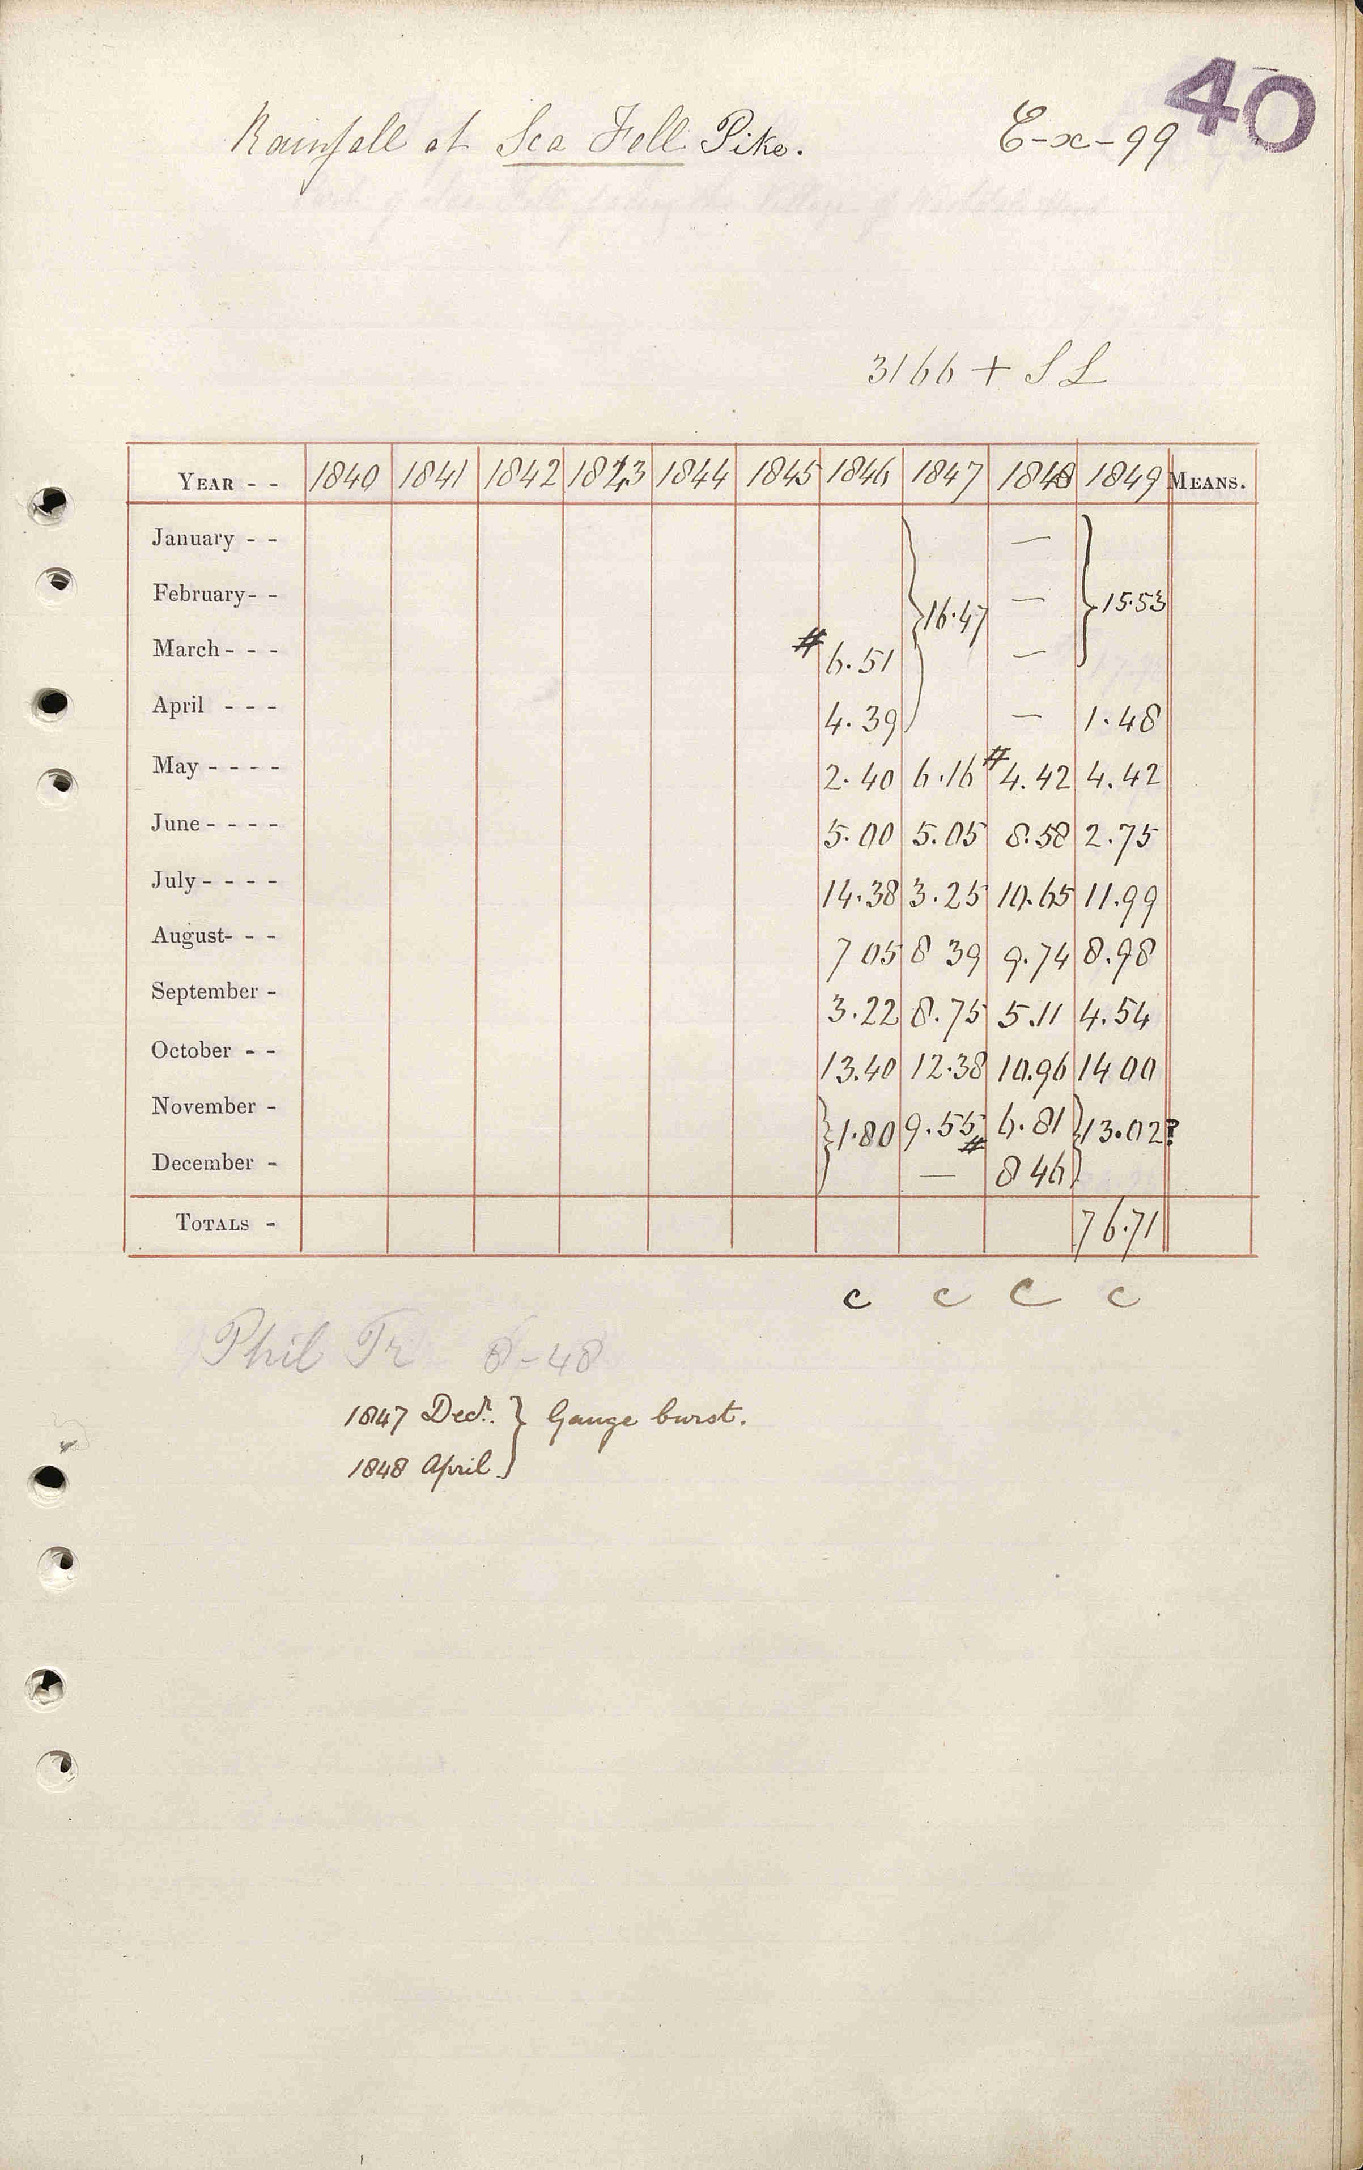 40
Rainfall at Sca Fell Pike. E-x-99
3166 + S L
YEAR - - 1840 1841 1842 1843 1844 1845 1846 1847 1848 1849 MEANS.
January - - —
February - - } 16.47 — } 15.53
March - - - # 6.51 —
April - - - 4.39 — 1.48
May - - - - 2.40 6.16 # 4.42 4.42
June - - - - 5.00 5.05 8.58 2.75
July - - - - 14.38 3.25 10.65 11.99
August- - - 7 05 8 39 9.74 8.98
September - 3.22 8.75 5.11 4.54
October - - 13.40 12.38 10.96 14 00
November - } 1.80 9.55 6.81 } 13.02?
December - # — 8 46
TOTALS - 76.71
c c c c
Phil Tr 8-48
1847 Decr. } Gauge burst.
1848 April